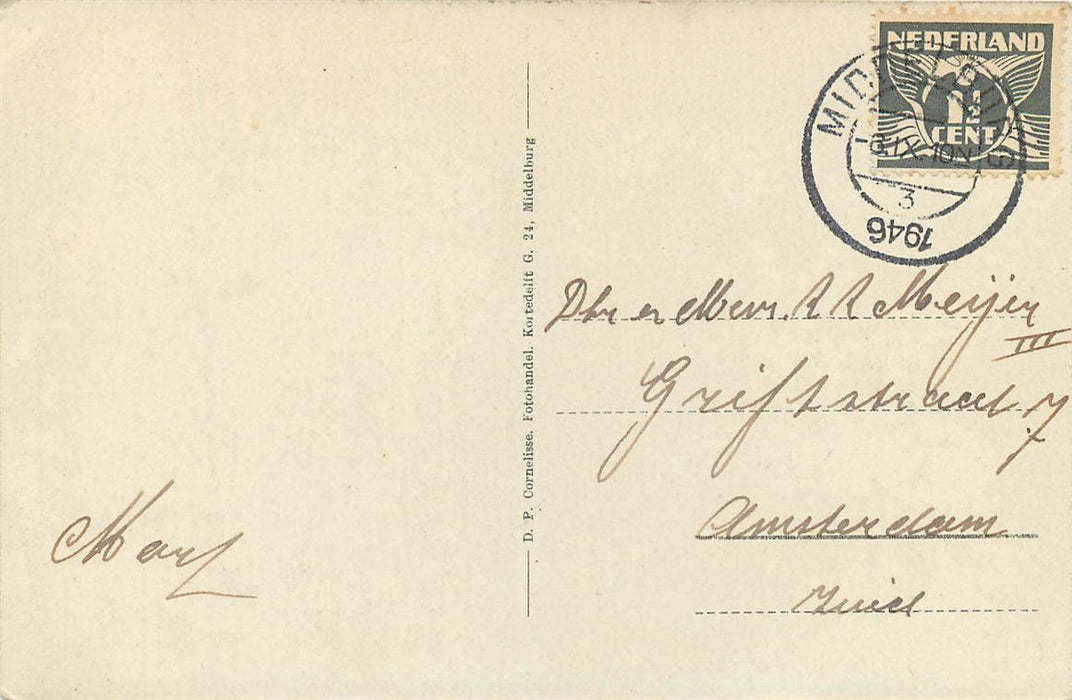 NEDERLAND
1½
CENT
MIDDELBURG
-8.IX.-10N
3
1946
D. P. Cornelisse. Fotohandel. Kortedelft G. 24, Middelburg
Dhr en Mevr. Meijer
Griftstraat 7 III
Amsterdam
Zuid